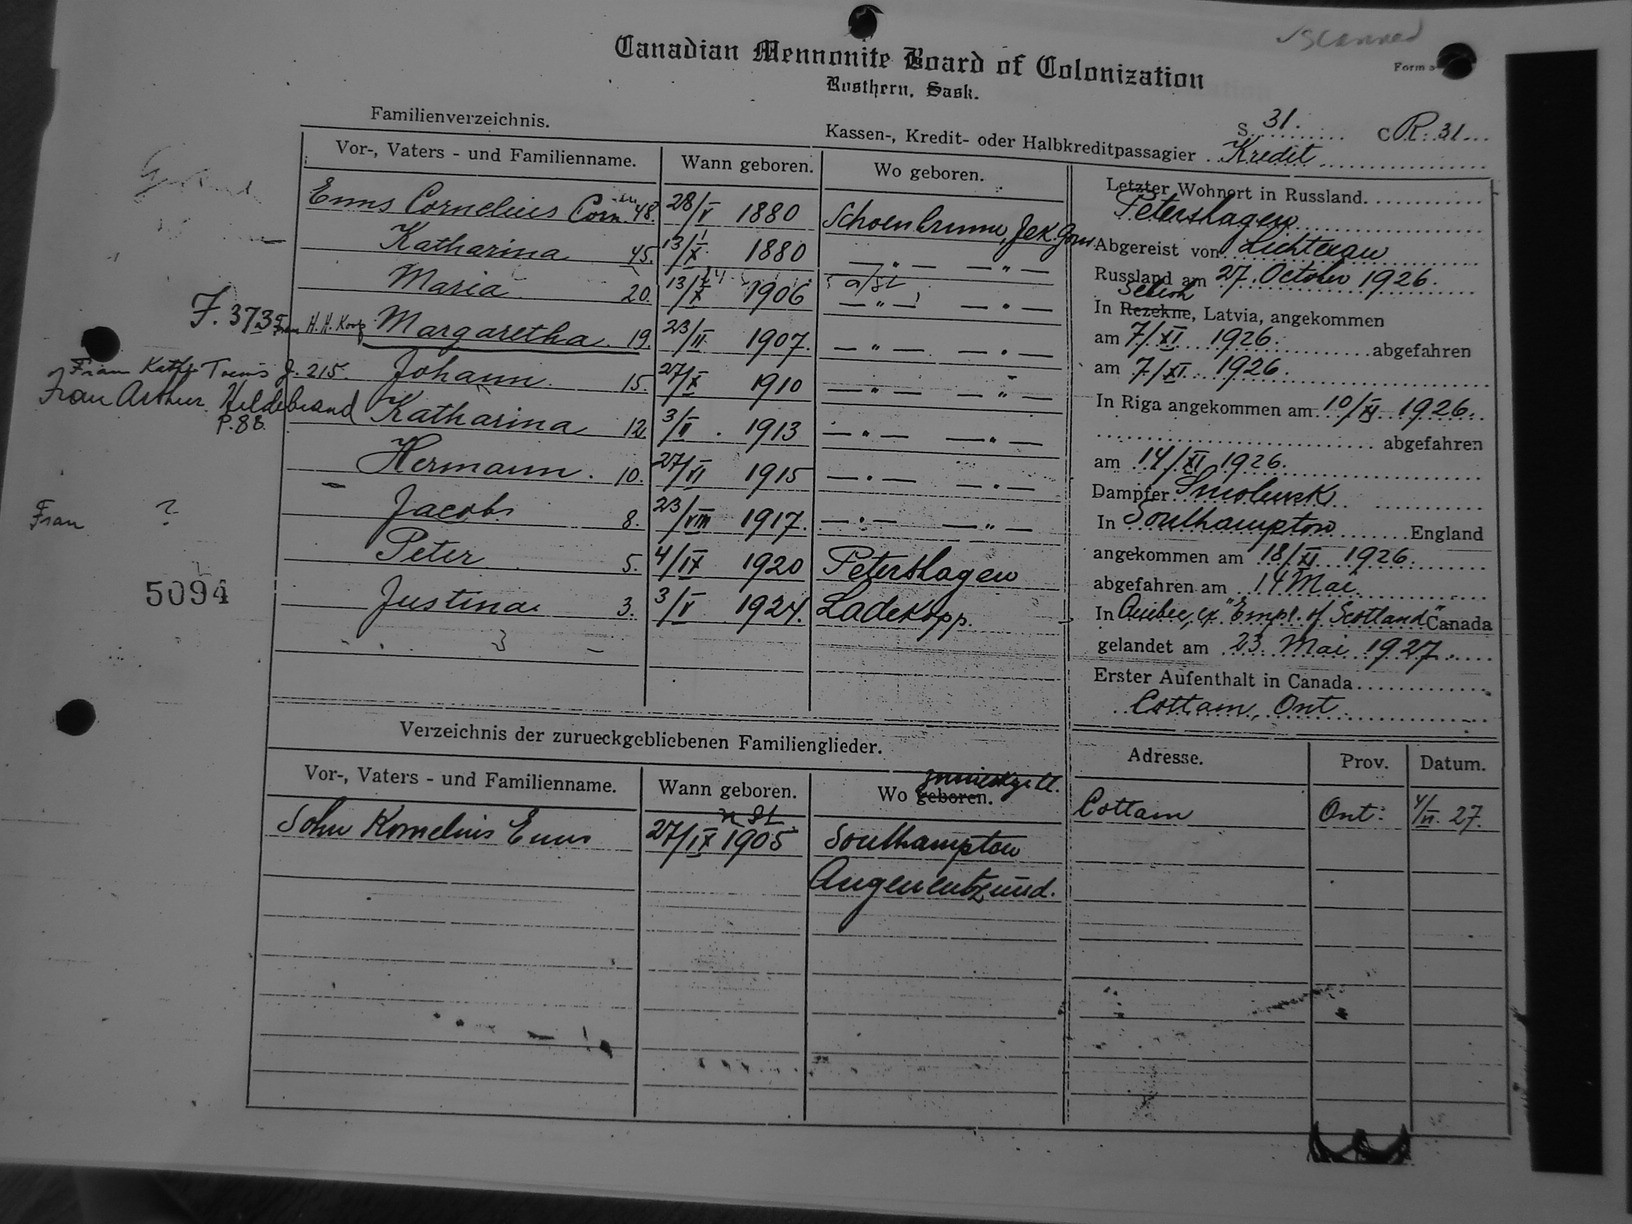 scanned
Form 3
Canadian Mennonite Board of Colonization
Rosthern, Sask.
Familienverzeichnis.
Kassen-, Kredit- oder Halbkreditpassagier Kredit S. 31. C R. 31
Vor-, Vaters - und Familienname. Wann geboren. Wo geboren.
Enns Cornelius Corn 48. 28/V 1880 Schoenbrunn, Jek. Gou
Katharina 45. 13/X 1880 — " — — " —
Maria 20. 13/X 1906 a/St — " — — " —
F. 3735 Frau H. H. Koop Margaretha 19. 23/II 1907. — " — — " —
Frau Käthe Toews J. 215. Johann 15. 27/X 1910 — " — — " —
Frau Arthur Hildebrand Katharina 12. 3/II 1913 — " — — " —
P. 88.
Hermann 10. 27/VI 1915 — " — — " —
Frau ? Jacob 8. 23/VIII 1917. — " — — " —
Peter 5. 4/IX 1920 Petershagen
5094
Justina 3. 3/V 1924. Ladekopp.
Letzter Wohnort in Russland
Petershagen
Abgereist von Lichtenau
Russland am 27. October 1926.
In Rezekne, Latvia, angekommen
am 7/XI 1926. abgefahren
am 7/XI 1926.
In Riga angekommen am 10/XI 1926.
abgefahren
am 14/XI 1926.
Dampfer Smolensk
In Southampton England
angekommen am 18/XI 1926.
abgefahren am 14 Mai
In Quebec, ex "Empr. of Scotland" Canada
gelandet am 23. Mai 1927.
Erster Aufenthalt in Canada
Cottam, Ont
Verzeichnis der zurueckgebliebenen Familienglieder.
Vor-, Vaters - und Familienname. Wann geboren. Wo geboren. zurückgebl.
n St.
Sohn Kornelius Enns 27/IX 1905 Southampton
Augenentzünd.
Adresse. Prov. Datum.
Cottam Ont: 4/VI. 27.